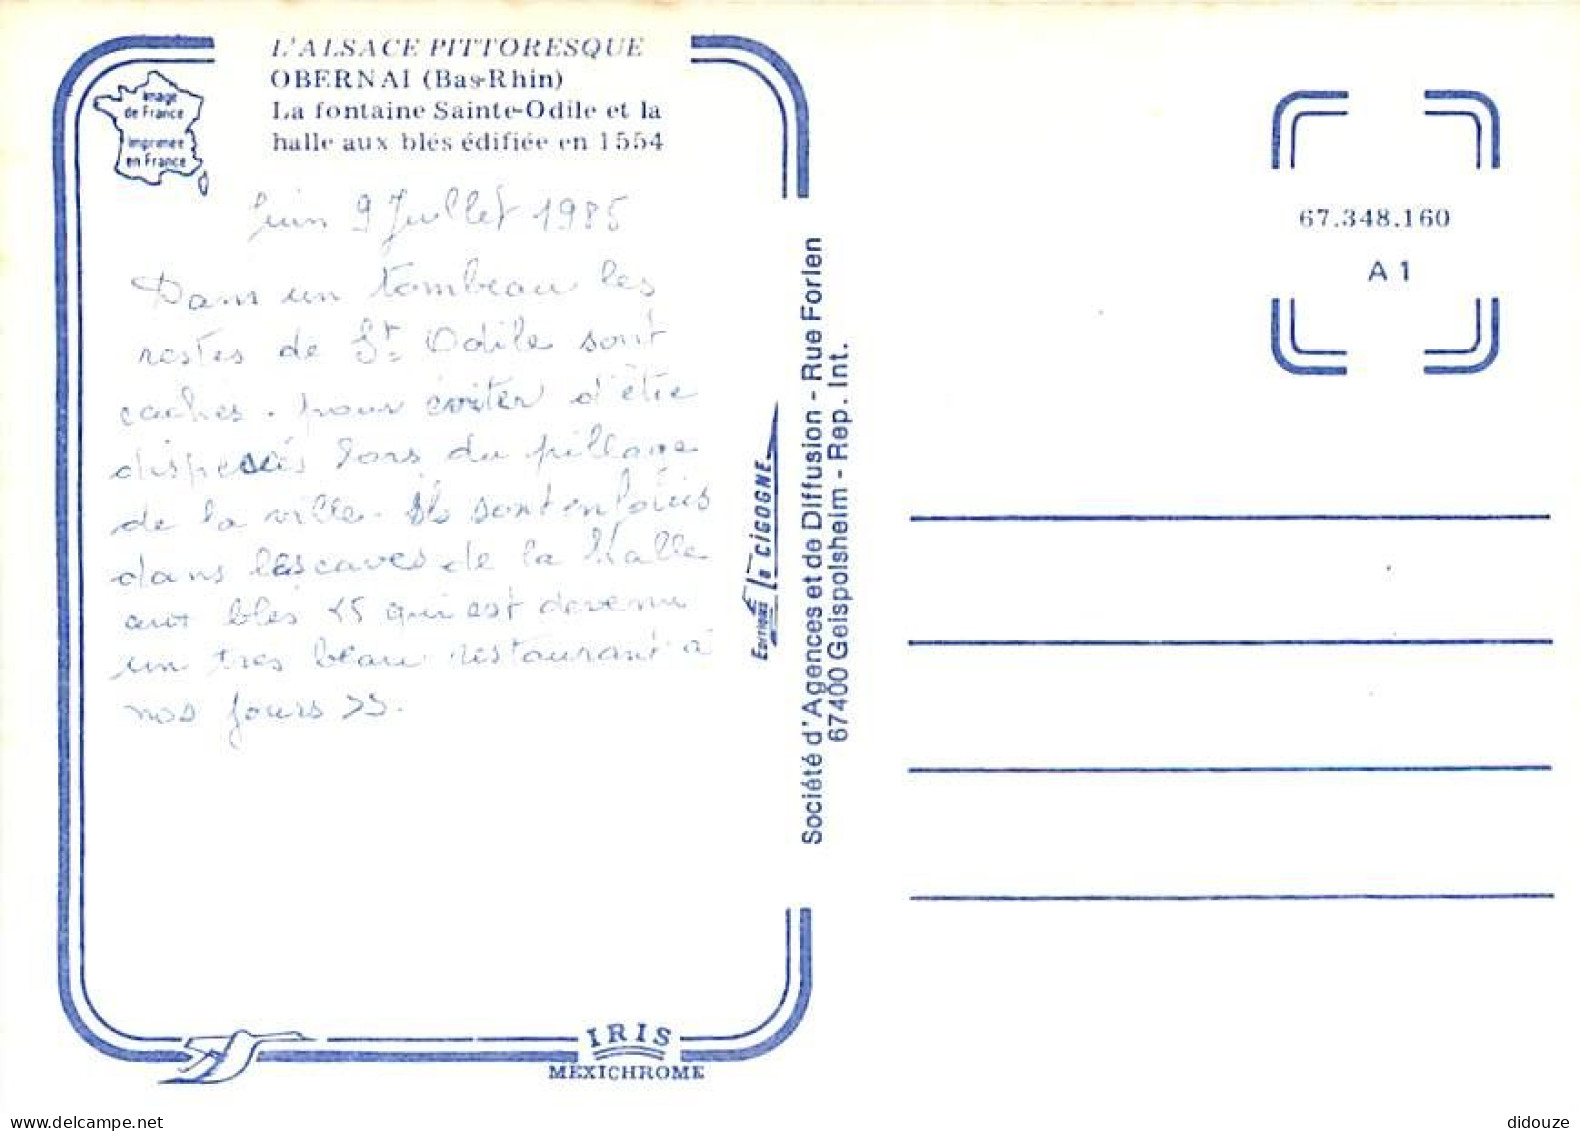 L'ALSACE PITTORESQUE
OBERNAI (Bas-Rhin)
La fontaine Sainte-Odile et la
halle aux blés édifiée en 1554
Image
de France
Imprimée
en France
Juin 9 Juillet 1985
Dans un tombeau les
restes de St Odile sont
cachés. pour éviter d'être
lors du pillage
de la ville. Ils sont enfouis
dans les caves de la halle
aux blés << qui est devenu
un tres beau restaurant à
nos jours >>.
Editions La CIGOGNE
Société d'Agences et de Diffusion - Rue Forlen
67400 Geispolsheim - Rep. Int.
67.348.160
A 1
IRIS
MEXICHROME
delcampe.net
didouze